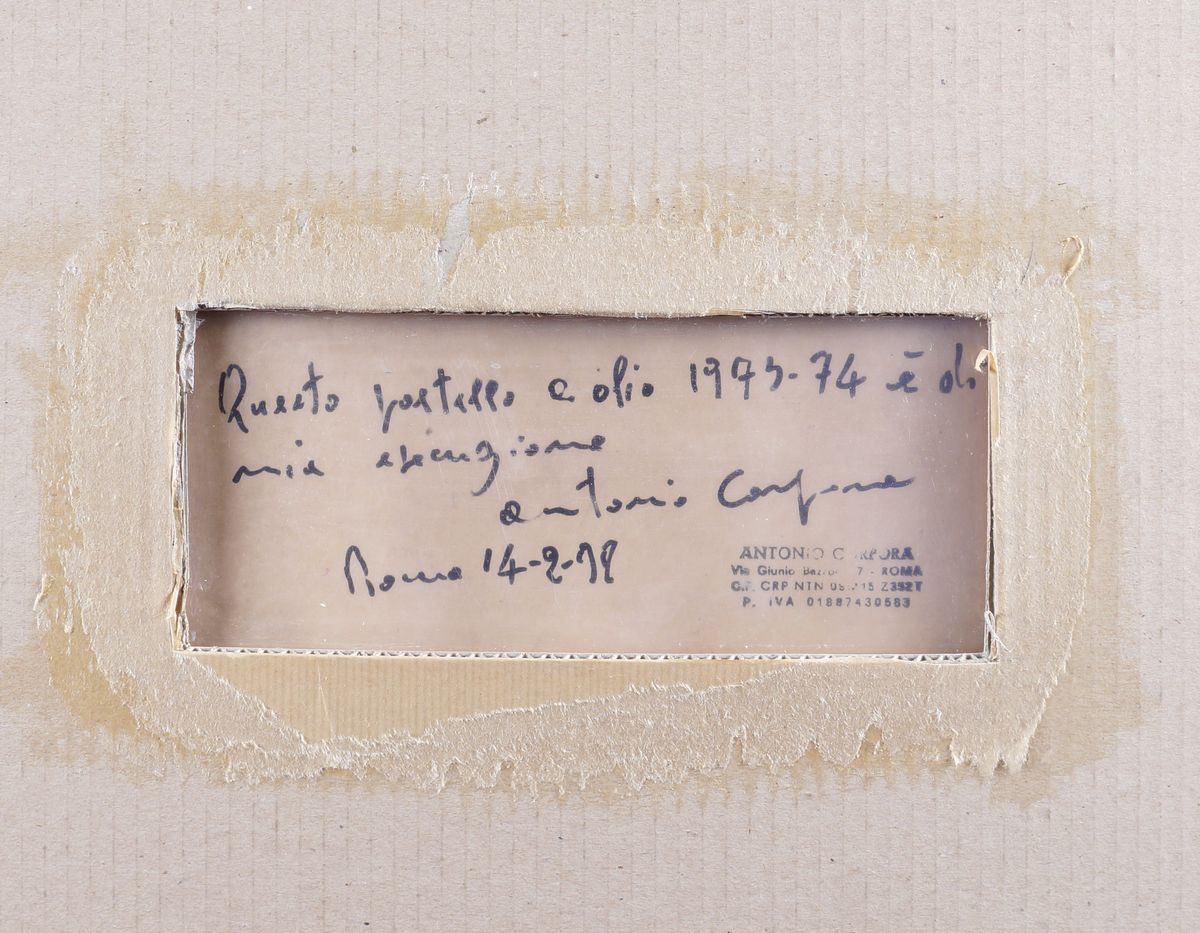 Questo pastello a olio 1973-74 è di
mia esecuzione
Antonio Corpora
Roma 14-2-98
ANTONIO C RPORA
Via Giunio 7 - ROMA
C.F. CRP NTN Z352T
P. IVA 01887430583